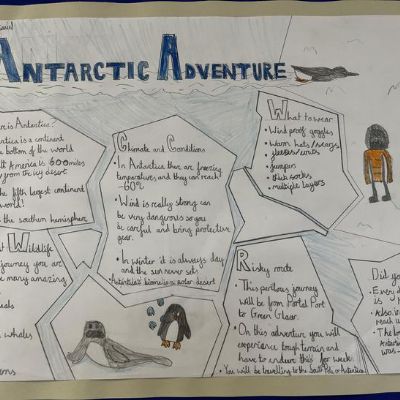 ANTARCTIC ADVENTURE
is Antarctica?
is a continent
bottom of the world
America is 600 miles
from the icy desert
the fifth largest continent
world!
the southern hemisphere
Wildlife
journey you are
many amazing
whales
Climate and Conditions
• In Antarctica there are freezing
temperatures and they can reach
-60°c
• Wind is really strong can
be very dangerous so you
be careful and bring protective
gear.
• In winter it is always day
and the sun never sets
Antarctica's biome is a polar desert
What to wear
• Wind proof goggles
• Warm hats/scarfs
gloves
• jumpers
• thick socks
• multiple layers
Risky route
• This perilous journey
will be from Portal Point
to Green
• On this adventure you will
experience tough terrain and
have to endure this for weeks
• You will be travelling to the South Pole of Antarctica
Did yo
• Even
is
• Also
reach
• The
Antar
was